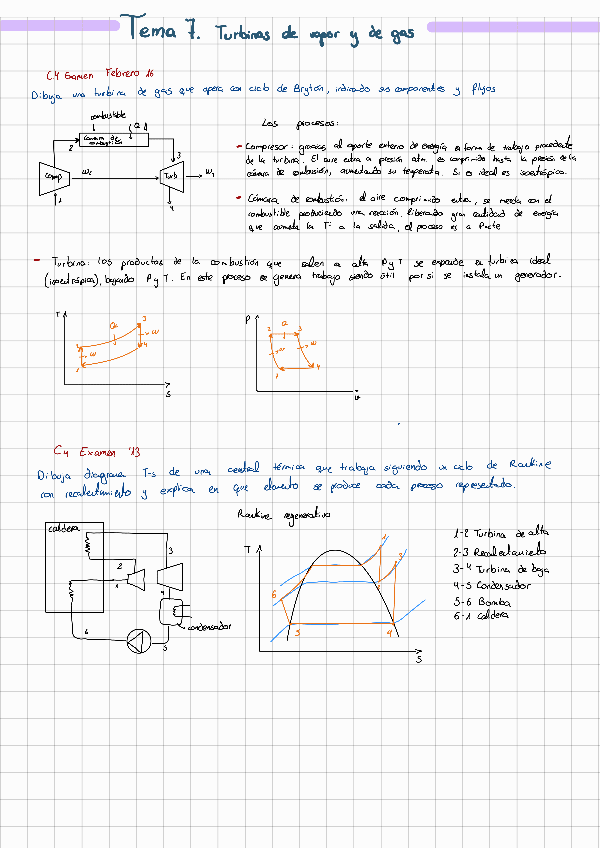 Tema 7. Turbinas de vapor y de gas
C4 Examen Febrero 16
Dibuja una turbina de gas que opera con ciclo de Brayton, indicando sus componentes y flujos
combustible
Q
cámara de combustión
2
3
comp
Turb
1
4
Los procesos:
- Compresor: gracias al aporte externo de energía en forma de trabajo procedente
de la turbina. El aire entra a presión atm. es comprimido hasta la presión de la
cámara de combustión, aumentando su temperatura. Si es ideal es isoentrópico.
- Cámara de combustión: el aire comprimido entra, se mezcla con el
combustible produciendo una reacción, liberando gran cantidad de energía
que aumenta la Tª a la salida, el proceso es a P=cte
- Turbina: los productos de la combustión que salen a alta P y T se expande en turbina ideal
(isoentrópica), bajando P y T. En este proceso se genera trabajo siendo útil por si se instala un generador.
T
Q
3
2
w
w
4
1
S
P
2
Q
3
w
w
1
4
v
C4 Examen '13
Dibuja diagrama T-s de una central térmica que trabaja siguiendo un ciclo de Rankine
con recalentamiento y explica en que elemento se produce cada proceso representado.
Rankine regenerativo
caldera
3
2
1
4
condensador
6
5
T
1
3
2
6
5
4
S
1-2 Turbina de alta
2-3 Recalentamiento
3-4 Turbina de baja
4-5 Condensador
5-6 Bomba
6-1 Caldera